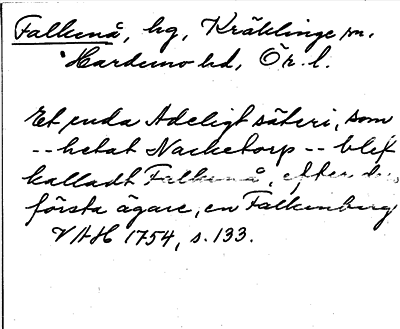 Falkenå, hg, Kräklinge sn.
Hardemo hd, Ör. l.
Et enda Adeligt säteri, som
-- hetat Nacketorp -- blef
kalladt Falkenå, efter
första ägare, en Falkenberg
VAH 1754, s. 133.